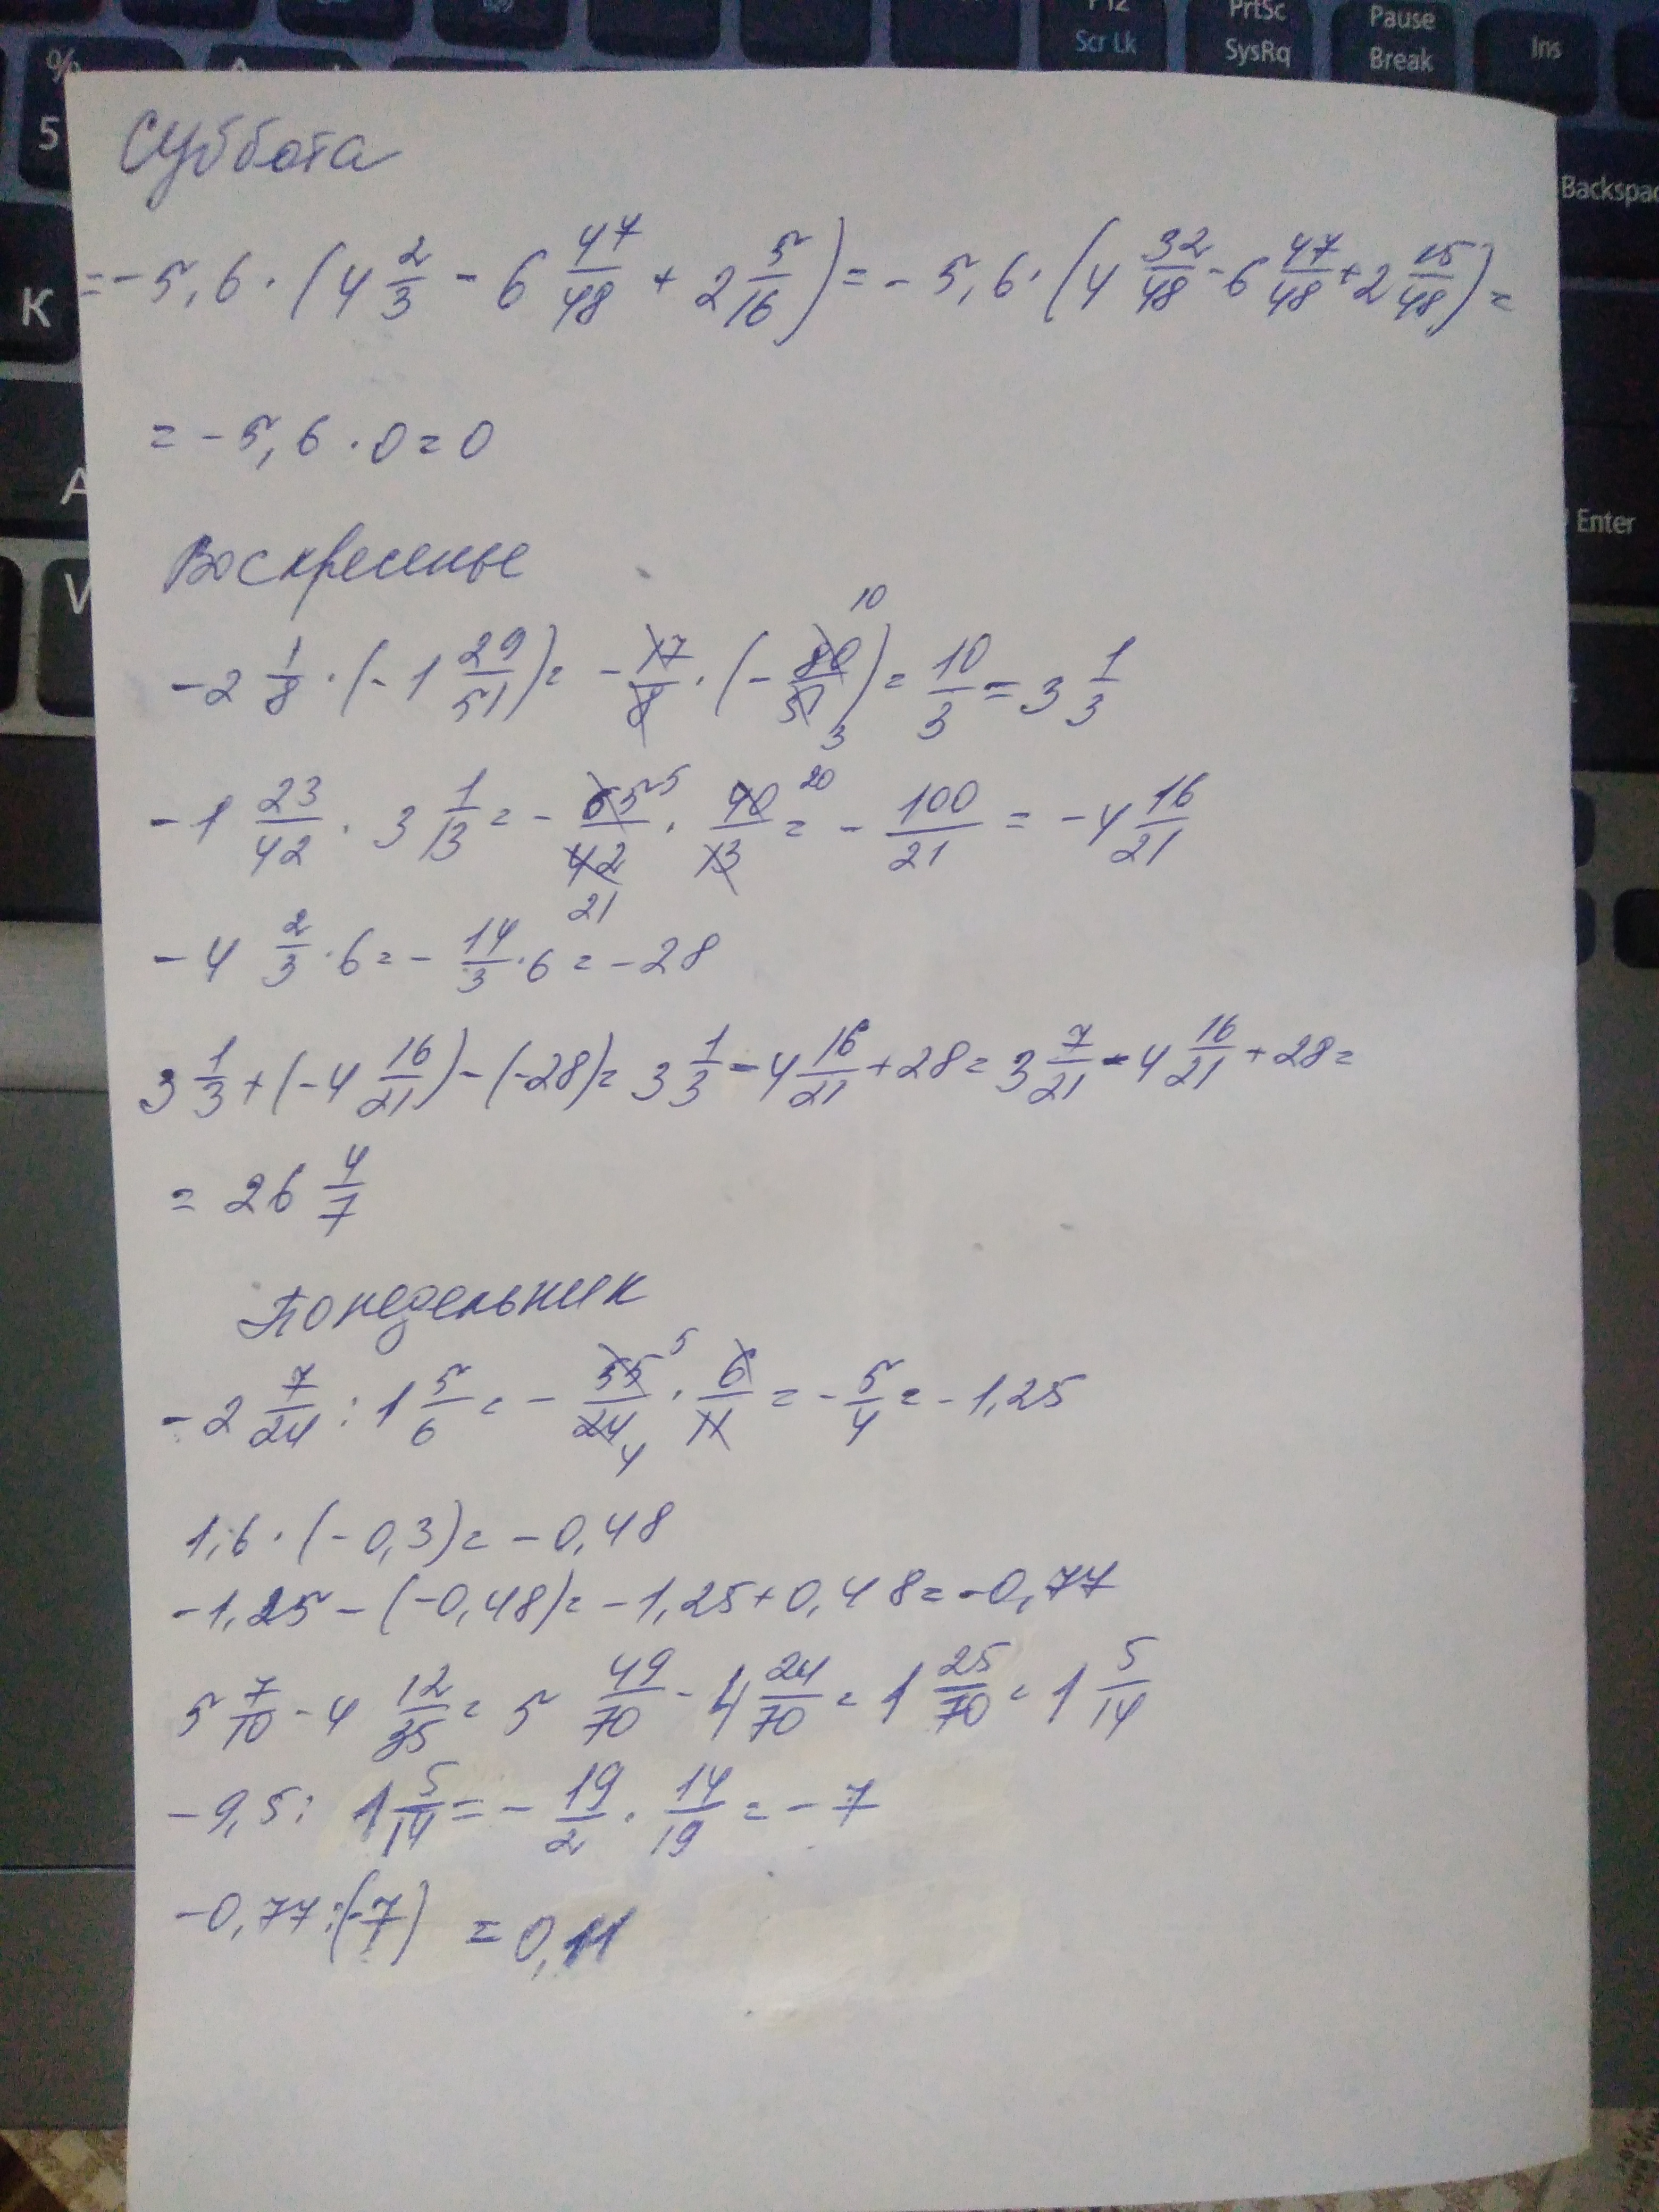 F12 PrtSc Pause
Scr Lk SysRq Break Ins
%
5
Backspac
К
A
Enter
Суббота
= - 5,6 · (4 2/3 - 6 47/48 + 2 5/16) = - 5,6 · (4 32/48 - 6 47/48 + 2 15/48) =
= - 5,6 · 0 = 0
Воскресенье
- 2 1/8 · (- 1 29/51) = - 17/8 · (- 80/51) = 10/3 = 3 1/3
10
3
- 1 23/42 · 3 1/13 = - 65/42 · 40/13 = - 100/21 = - 4 16/21
5 20
21
- 4 2/3 · 6 = - 14/3 · 6 = - 28
3 1/3 + (- 4 16/21) - (-28) = 3 1/3 - 4 16/21 + 28 = 3 7/21 - 4 16/21 + 28 =
= 26 4/7
Понедельник
- 2 7/24 : 1 5/6 = - 55/24 · 6/11 = - 5/4 = - 1,25
5
4
1,6 · (- 0,3) = - 0,48
- 1,25 - (-0,48) = - 1,25 + 0,48 = -0,77
5 7/10 - 4 12/35 = 5 49/70 - 4 24/70 = 1 25/70 = 1 5/14
- 9,5 : 1 5/14 = - 19/2 · 14/19 = - 7
-0,77 : (-7) = 0,11